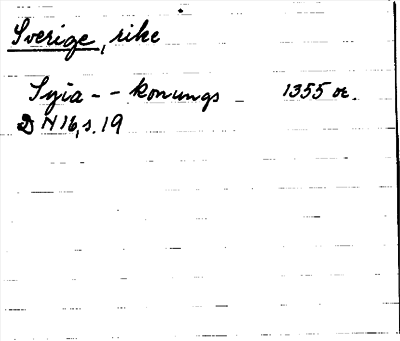 Sverige, rike
Syia - - konungs 1355 or.
DN 16, s. 19